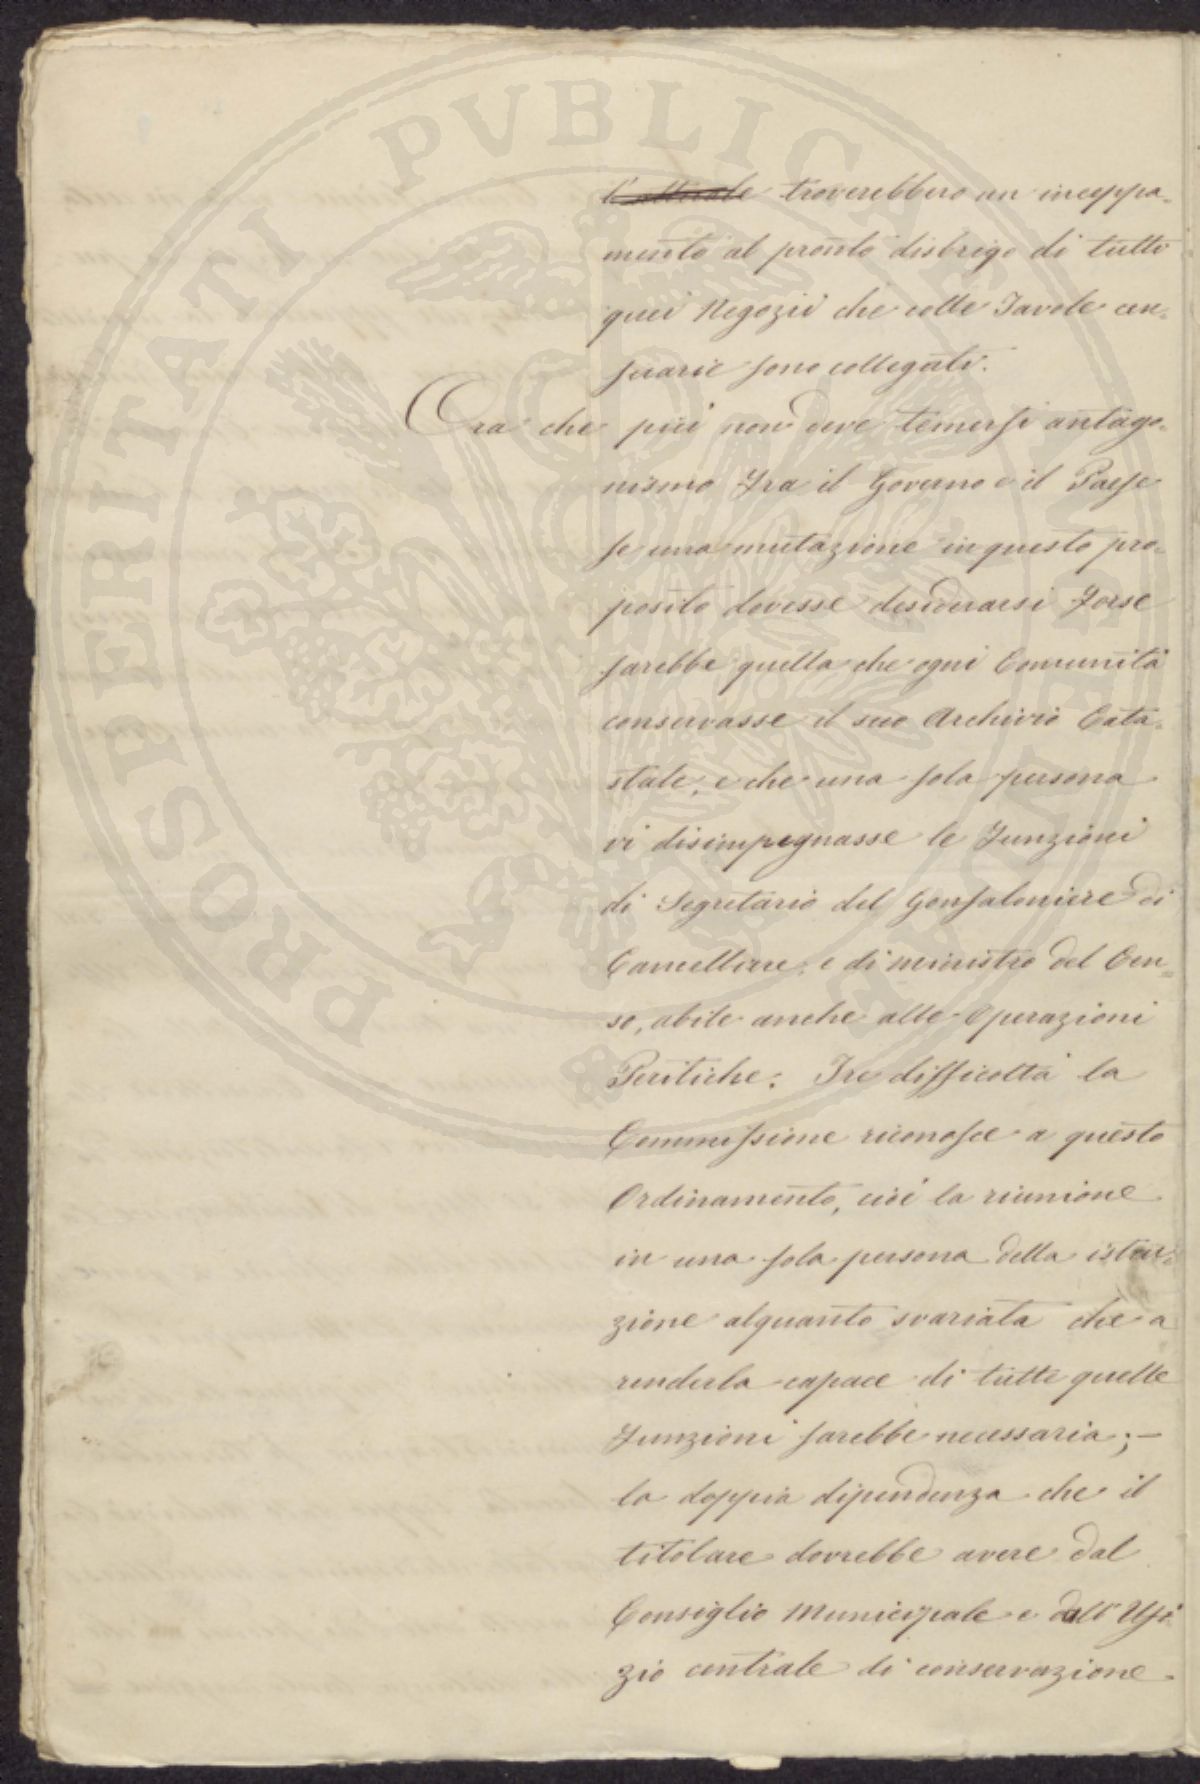 troverebbero un inceppa-
mento al pronto disbrigo di tutti
quei Negozii che colle Tavole cen-
suarie sono collegati.
Ora che più non deve temersi antago-
nismo fra il Governo e il Paese
se una mutazione in questo pro-
posito dovesse desiderarsi forse
sarebbe quella che ogni Comunità
conservasse il suo Archivio Cata-
stale, e che una sola persona
vi disimpegnasse le Funzioni
di Segretario del Gonfaloniere di
Cancelliere, e di ministro del Cen-
so, abile anche alle Operazioni
Peritiche. Tre difficoltà la
Commissione riconosce a questo
Ordinamento, cioè la riunione
in una sola persona della istru-
zione alquanto svariata che a
renderla capace di tutte quelle
Funzioni sarebbe necessaria; —
la doppia dipendenza che il
titolare dovrebbe avere dal
Consiglio Municipale e dall'Ufi-
zio centrale di conservazione
PROSPERITATI PVBLICAE